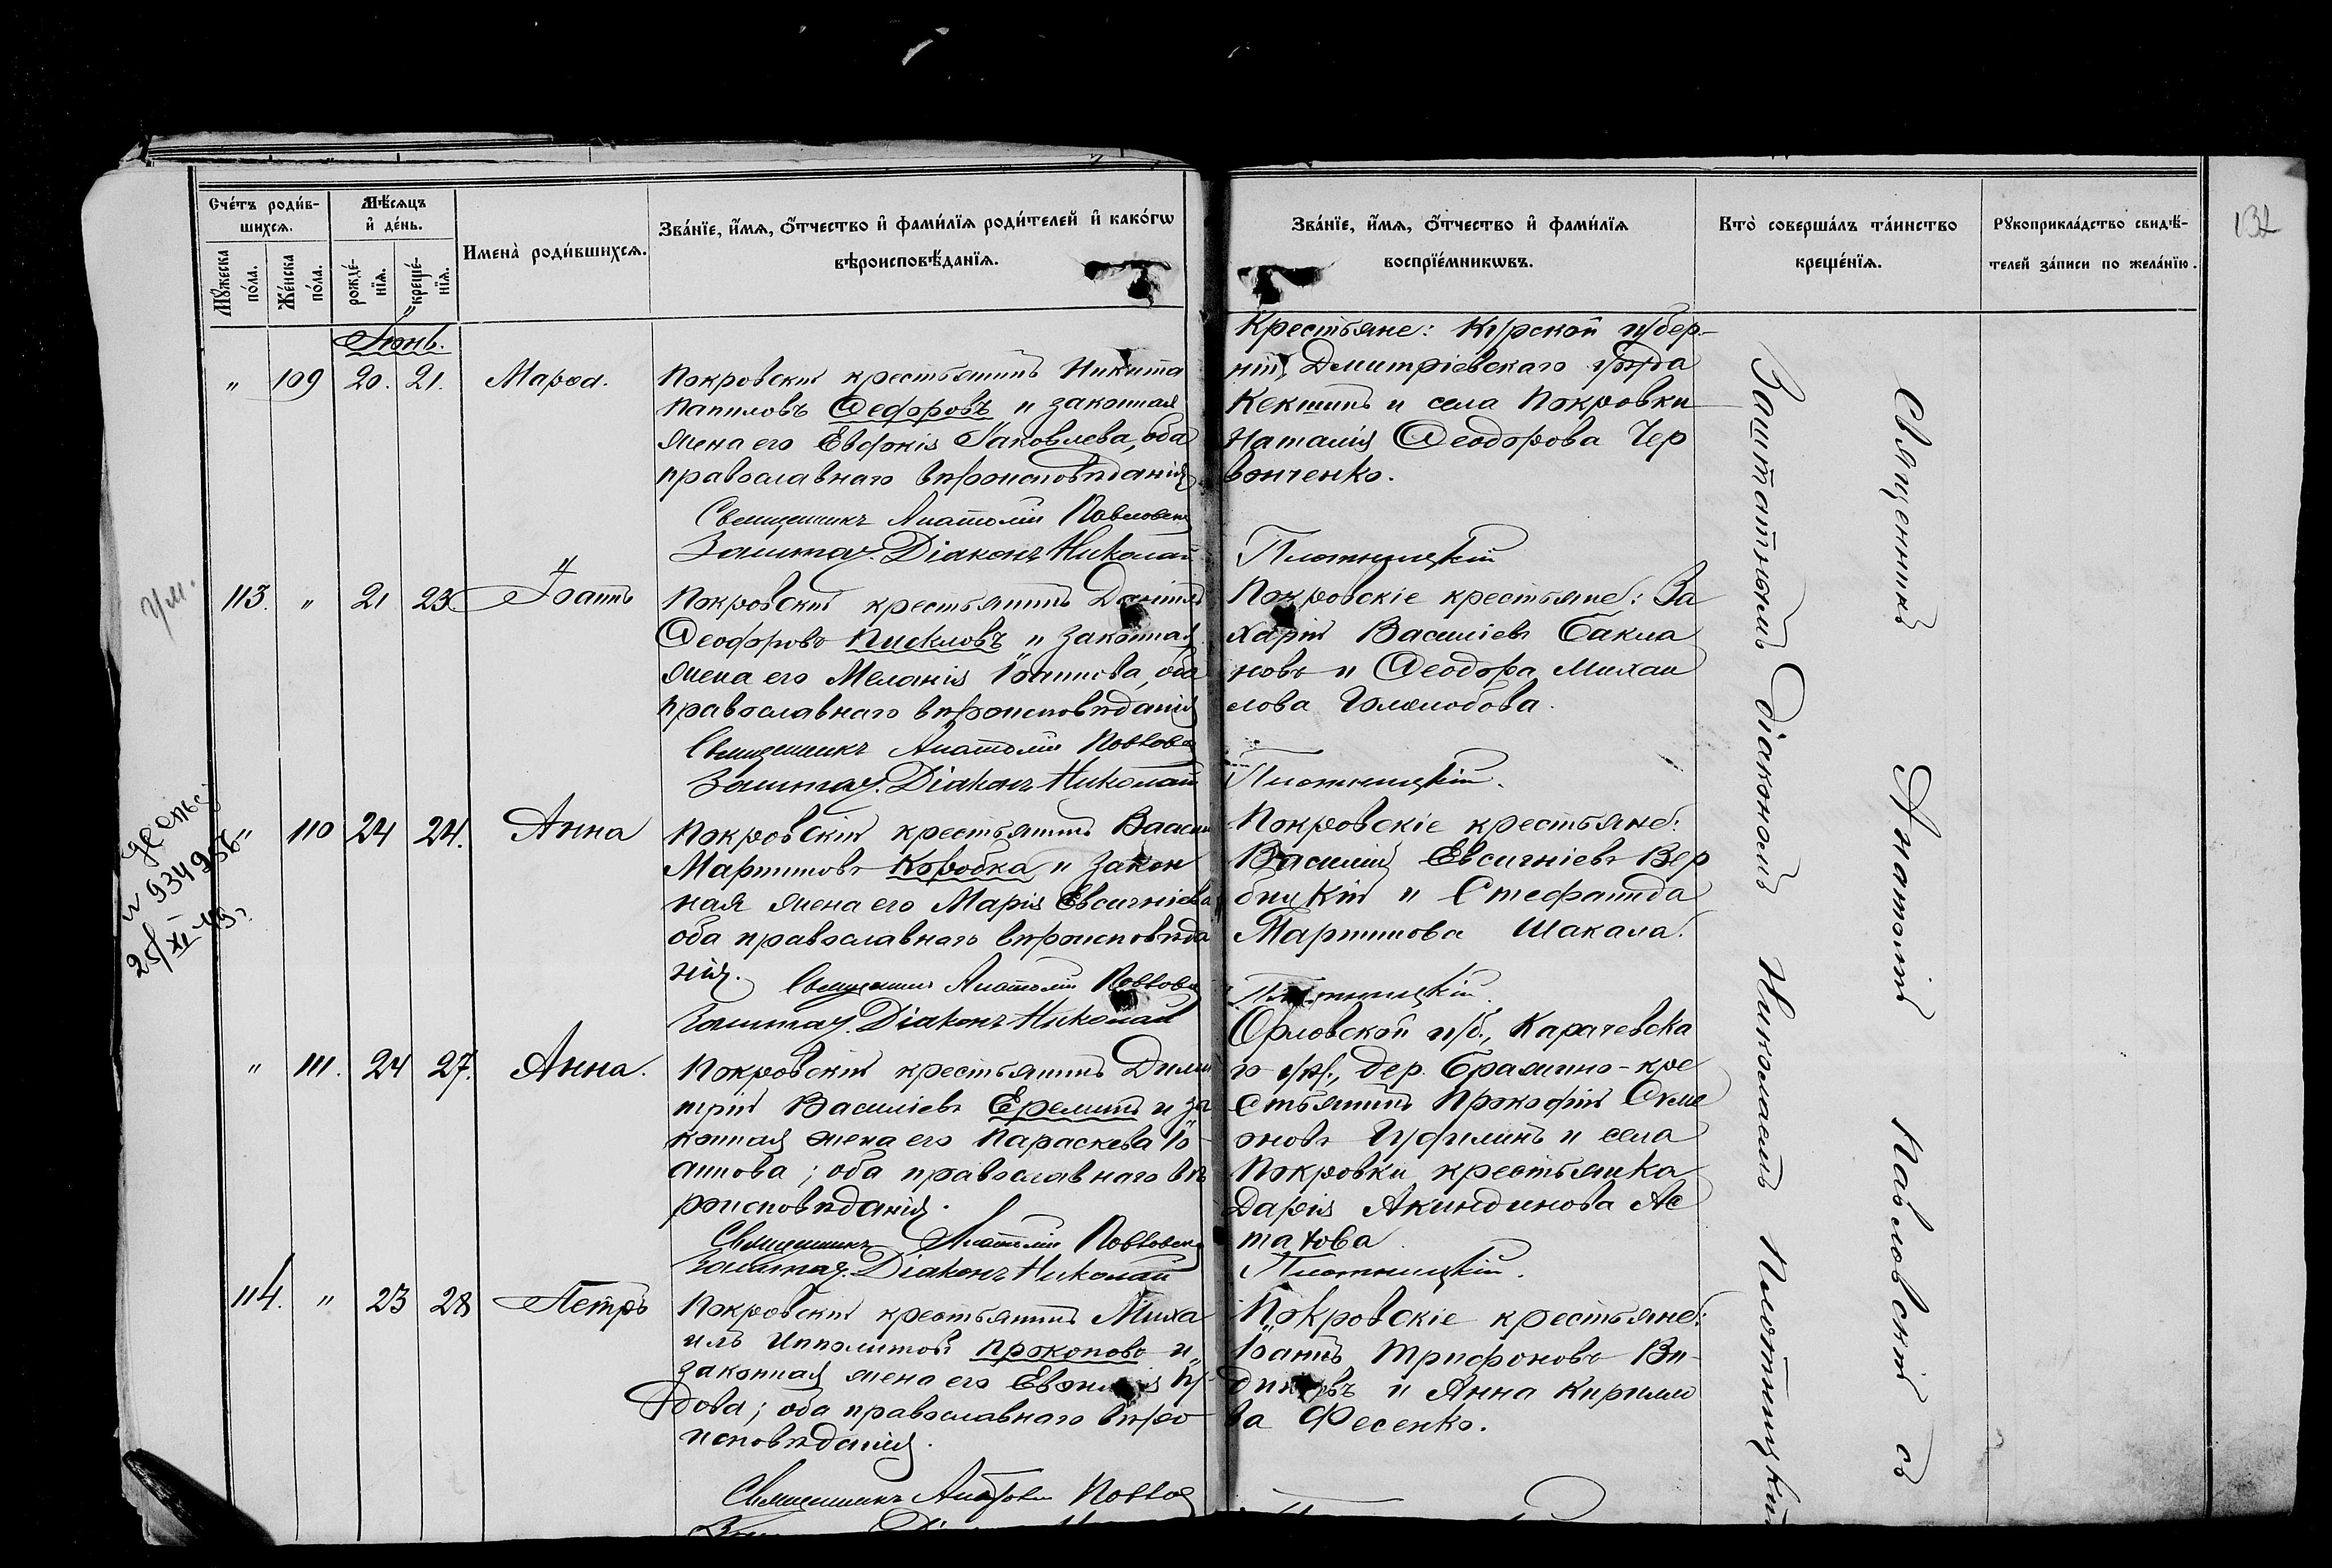 132
Счетъ родив-
шихся.
Мужеска
пола.
Женска
пола.
Мѣсяцъ
и день.
рожде-
нія.
креще-
нія.
Имена родившихся.
Званіе, имя, отчество и фамилія родителей и какого
вѣроисповѣданія.
Званіе, имя, отчество и фамилія
воспріемниковъ.
Кто совершалъ таинство
крещенія.
Рукоприкладство свидѣ-
телей записи по желанію.
Іюнь.
" 109 20. 21. Марѳа.
Покровскій крестьянинъ Никита
Ѳедоровъ и законная
жена его Іаковлева, оба
православнаго вѣроисповѣданія
Священникъ Анатолій Павловскій
Заштат. Діаконъ Николай
Крестьяне: Курской губер-
ніи, Дмитріевскаго уѣзда
и села Покровки
Наталія Ѳеодорова Чер
вонченко.
Плотницкій
ум.
113. " 21 23 Іоаннъ
Покровскій крестьянинъ Даніилъ
Ѳеодоровъ и законная
жена его Меланія Іоаннова, оба
православнаго вѣроисповѣданія
Священникъ Анатолій Павловскій
Заштат. Діаконъ Николай
Покровскіе крестьяне: За
харій Василіевъ Бакла
новъ и Ѳеодора Михаи
лова
Плотницкій.
25/XI
" 110 24 24. Анна
Покровскій крестьянинъ Василій
Мартиновъ Коробка и закон
ная жена его Марія Евсигніева
оба православнаго вѣроисповѣда
нія. Священникъ Анатолій Павловскій
Заштат. Діаконъ Николай
Покровскіе крестьяне:
Василій Евсигніевъ Вер
бицкій и Стефанида
Мартинова Шакала.
Плотницкій.
" 111. 24 27. Анна.
Покровскій крестьянинъ Дими
трій Василіевъ Ереминъ и за
конная жена его Параскева Іо
аннова; оба православнаго вѣ
роисповѣданія.
Священникъ Анатолій Павловскій
Заштат. Діаконъ Николай
Орловской губ., Карачевска
го уѣз., дер. Бражино - кре
стьянинъ Прокофій Симе
оновъ и села
Покровки крестьянка
Дарія Акиндинова Ас
тахова
Плотницкій.
114. " 23 28 Петръ
Покровскій крестьянинъ Миха
илъ Ипполитовъ Прокоповъ и
законная жена его
дова; оба православнаго вѣро
исповѣданія.
Священникъ
Покровскіе крестьяне:
Іоаннъ Трифоновъ
и Анна Кирилло
ва Фесенко.
Священникъ Анатолій Павловскій съ
Заштатнымъ Діакономъ Николаемъ Плотницкимъ